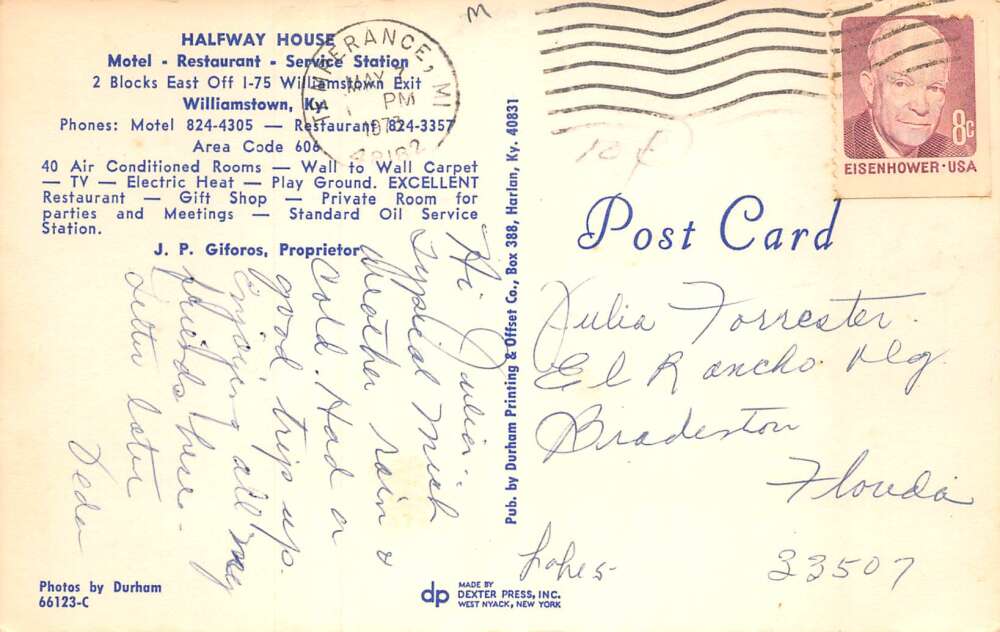 HALFWAY HOUSE
Motel - Restaurant - Service Station
2 Blocks East Off I-75 Williamstown Exit
Williamstown, Ky.
Phones: Motel 824-4305 — Restaurant 824-3357
Area Code 606
40 Air Conditioned Rooms — Wall to Wall Carpet
— TV — Electric Heat — Play Ground. EXCELLENT
Restaurant — Gift Shop — Private Room for
parties and Meetings — Standard Oil Service
Station.
J. P. Giforos, Proprietor
Hi Julia.
Typical Mich
weather rain &
cold. Had a
good trip up.
Enjoying all my
friends here -
Letter later
Photos by Durham
66123-C
Pub. by Durham Printing & Offset Co., Box 388, Harlan, Ky. 40831
dp
MADE BY
DEXTER PRESS, INC.
WEST NYACK, NEW YORK
M
TEMPERANCE, MI
MAY
PM
48182
10¢
8c
EISENHOWER·USA
Post Card
Julia Forrester.
El Rancho Vlg.
Bradenton
Florida
33507